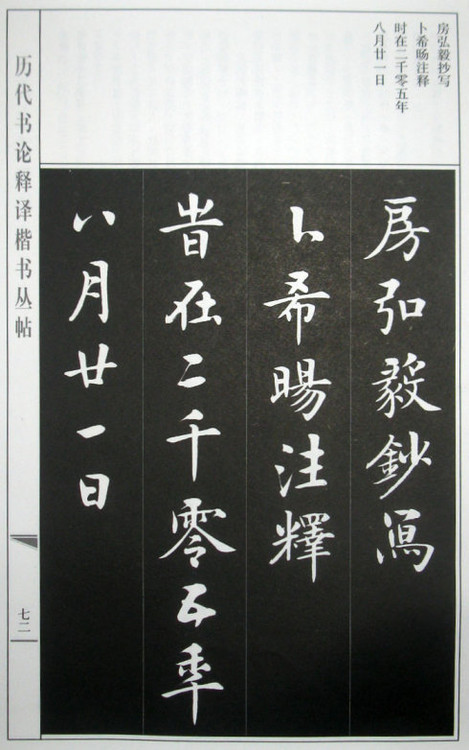 房弘毅抄写
卜希旸注释
时在二千零五年
八月廿一日
房弘毅鈔寫
卜希暘注釋
旹在二千零五年
八月廿一日
历代书论释译楷书丛帖
七二